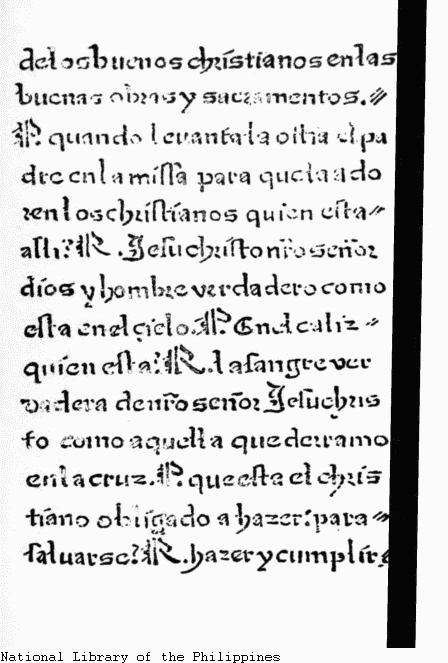 delos buenos christianos enlas
buenas obras y sacramentos.
P. quando levanta la ostia el pa
dre en la missa para que la ado
ren los christianos quien esta
alli? R. Jesuchristo nro señor
dios y hombre verdadero como
esta en el çielo. P. En el caliz
quien esta? R. la sangre ver
dadera de nro señor Jesuchris
to como aquella que derramo
en la cruz. P. que esta el chris
tiano obligado a hazer? para
saluarse? R. hazer y cumplir
National Library of the Philippines